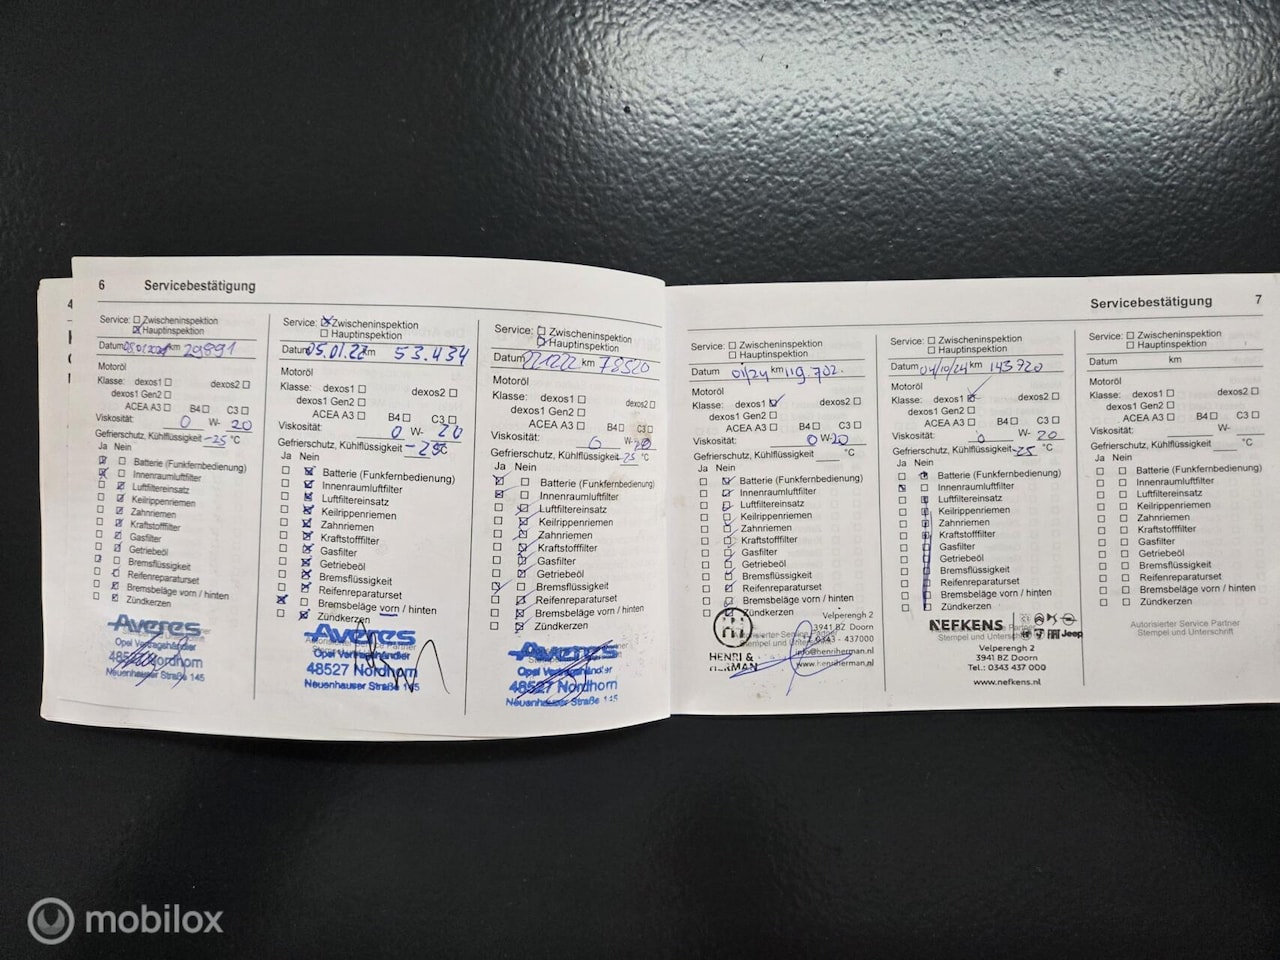 6 Servicebestätigung
Service: Zwischeninspektion
Hauptinspektion
Datum km 29891
Motoröl
Klasse: dexos1 dexos2
dexos1 Gen2
ACEA A3 B4 C3
Viskosität: 0 W- 20
Gefrierschutz, Kühlflüssigkeit -25 °C
Ja Nein
Batterie (Funkfernbedienung)
Innenraumluftfilter
Luftfiltereinsatz
Keilrippenriemen
Zahnriemen
Kraftstofffilter
Gasfilter
Getriebeöl
Bremsflüssigkeit
Reifenreparaturset
Bremsbeläge vorn / hinten
Zündkerzen
Averes
Opel Vertragshändler
48527 Nordhorn
Neuenhauser Straße 145
Service: Zwischeninspektion
Hauptinspektion
Datum 05.01.22 km 53.434
Motoröl
Klasse: dexos1 dexos2
dexos1 Gen2
ACEA A3 B4 C3
Viskosität: 0 W- 20
Gefrierschutz, Kühlflüssigkeit -25 °C
Ja Nein
Batterie (Funkfernbedienung)
Innenraumluftfilter
Luftfiltereinsatz
Keilrippenriemen
Zahnriemen
Kraftstofffilter
Gasfilter
Getriebeöl
Bremsflüssigkeit
Reifenreparaturset
Bremsbeläge vorn / hinten
Zündkerzen
Averes
Opel Vertragshändler
48527 Nordhorn
Neuenhauser Straße 145
Service: Zwischeninspektion
Hauptinspektion
Datum km
Motoröl
Klasse: dexos1 dexos2
dexos1 Gen2
ACEA A3 B4 C3
Viskosität: 0 W- 20
Gefrierschutz, Kühlflüssigkeit -25 °C
Ja Nein
Batterie (Funkfernbedienung)
Innenraumluftfilter
Luftfiltereinsatz
Keilrippenriemen
Zahnriemen
Kraftstofffilter
Gasfilter
Getriebeöl
Bremsflüssigkeit
Reifenreparaturset
Bremsbeläge vorn / hinten
Zündkerzen
Averes
Opel Vertragshändler
48527 Nordhorn
Neuenhauser Straße 145
Servicebestätigung 7
Service: Zwischeninspektion
Hauptinspektion
Datum 01/24 km 119.702.
Motoröl
Klasse: dexos1 dexos2
dexos1 Gen2
ACEA A3 B4 C3
Viskosität: 0 W- 20
Gefrierschutz, Kühlflüssigkeit °C
Ja Nein
Batterie (Funkfernbedienung)
Innenraumluftfilter
Luftfiltereinsatz
Keilrippenriemen
Zahnriemen
Kraftstofffilter
Gasfilter
Getriebeöl
Bremsflüssigkeit
Reifenreparaturset
Bremsbeläge vorn / hinten
Zündkerzen
HENRI &
HERMAN
Velperengh 2
3941 BZ Doorn
0343 - 437000
info@henriherman.nl
www.henriherman.nl
Service: Zwischeninspektion
Hauptinspektion
Datum 04/10/24 km 143720
Motoröl
Klasse: dexos1 dexos2
dexos1 Gen2
ACEA A3 B4 C3
Viskosität: 0 W- 20
Gefrierschutz, Kühlflüssigkeit -25 °C
Ja Nein
Batterie (Funkfernbedienung)
Innenraumluftfilter
Luftfiltereinsatz
Keilrippenriemen
Zahnriemen
Kraftstofffilter
Gasfilter
Getriebeöl
Bremsflüssigkeit
Reifenreparaturset
Bremsbeläge vorn / hinten
Zündkerzen
NEFKENS
Jeep
Velperengh 2
3941 BZ Doorn
Tel.: 0343 437 000
www.nefkens.nl
Service: Zwischeninspektion
Hauptinspektion
Datum km
Motoröl
Klasse: dexos1 dexos2
dexos1 Gen2
ACEA A3 B4 C3
Viskosität: W-
Gefrierschutz, Kühlflüssigkeit °C
Ja Nein
Batterie (Funkfernbedienung)
Innenraumluftfilter
Luftfiltereinsatz
Keilrippenriemen
Zahnriemen
Kraftstofffilter
Gasfilter
Getriebeöl
Bremsflüssigkeit
Reifenreparaturset
Bremsbeläge vorn / hinten
Zündkerzen
Autorisierter Service Partner
Stempel und Unterschrift
mobilox